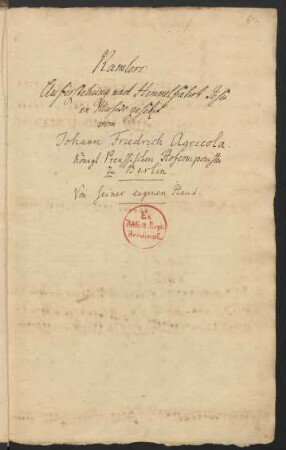 Ramlers
Auferstehung und Himmelfahrt Jesu
in Musik gesetzt
von
Johann Friedrich Agricola.
Königl. Preussischen Hofcomponisten
zu Berlin
Von seiner eigenen Hand.
Ex
Biblioth. Regia
Berolinensi.